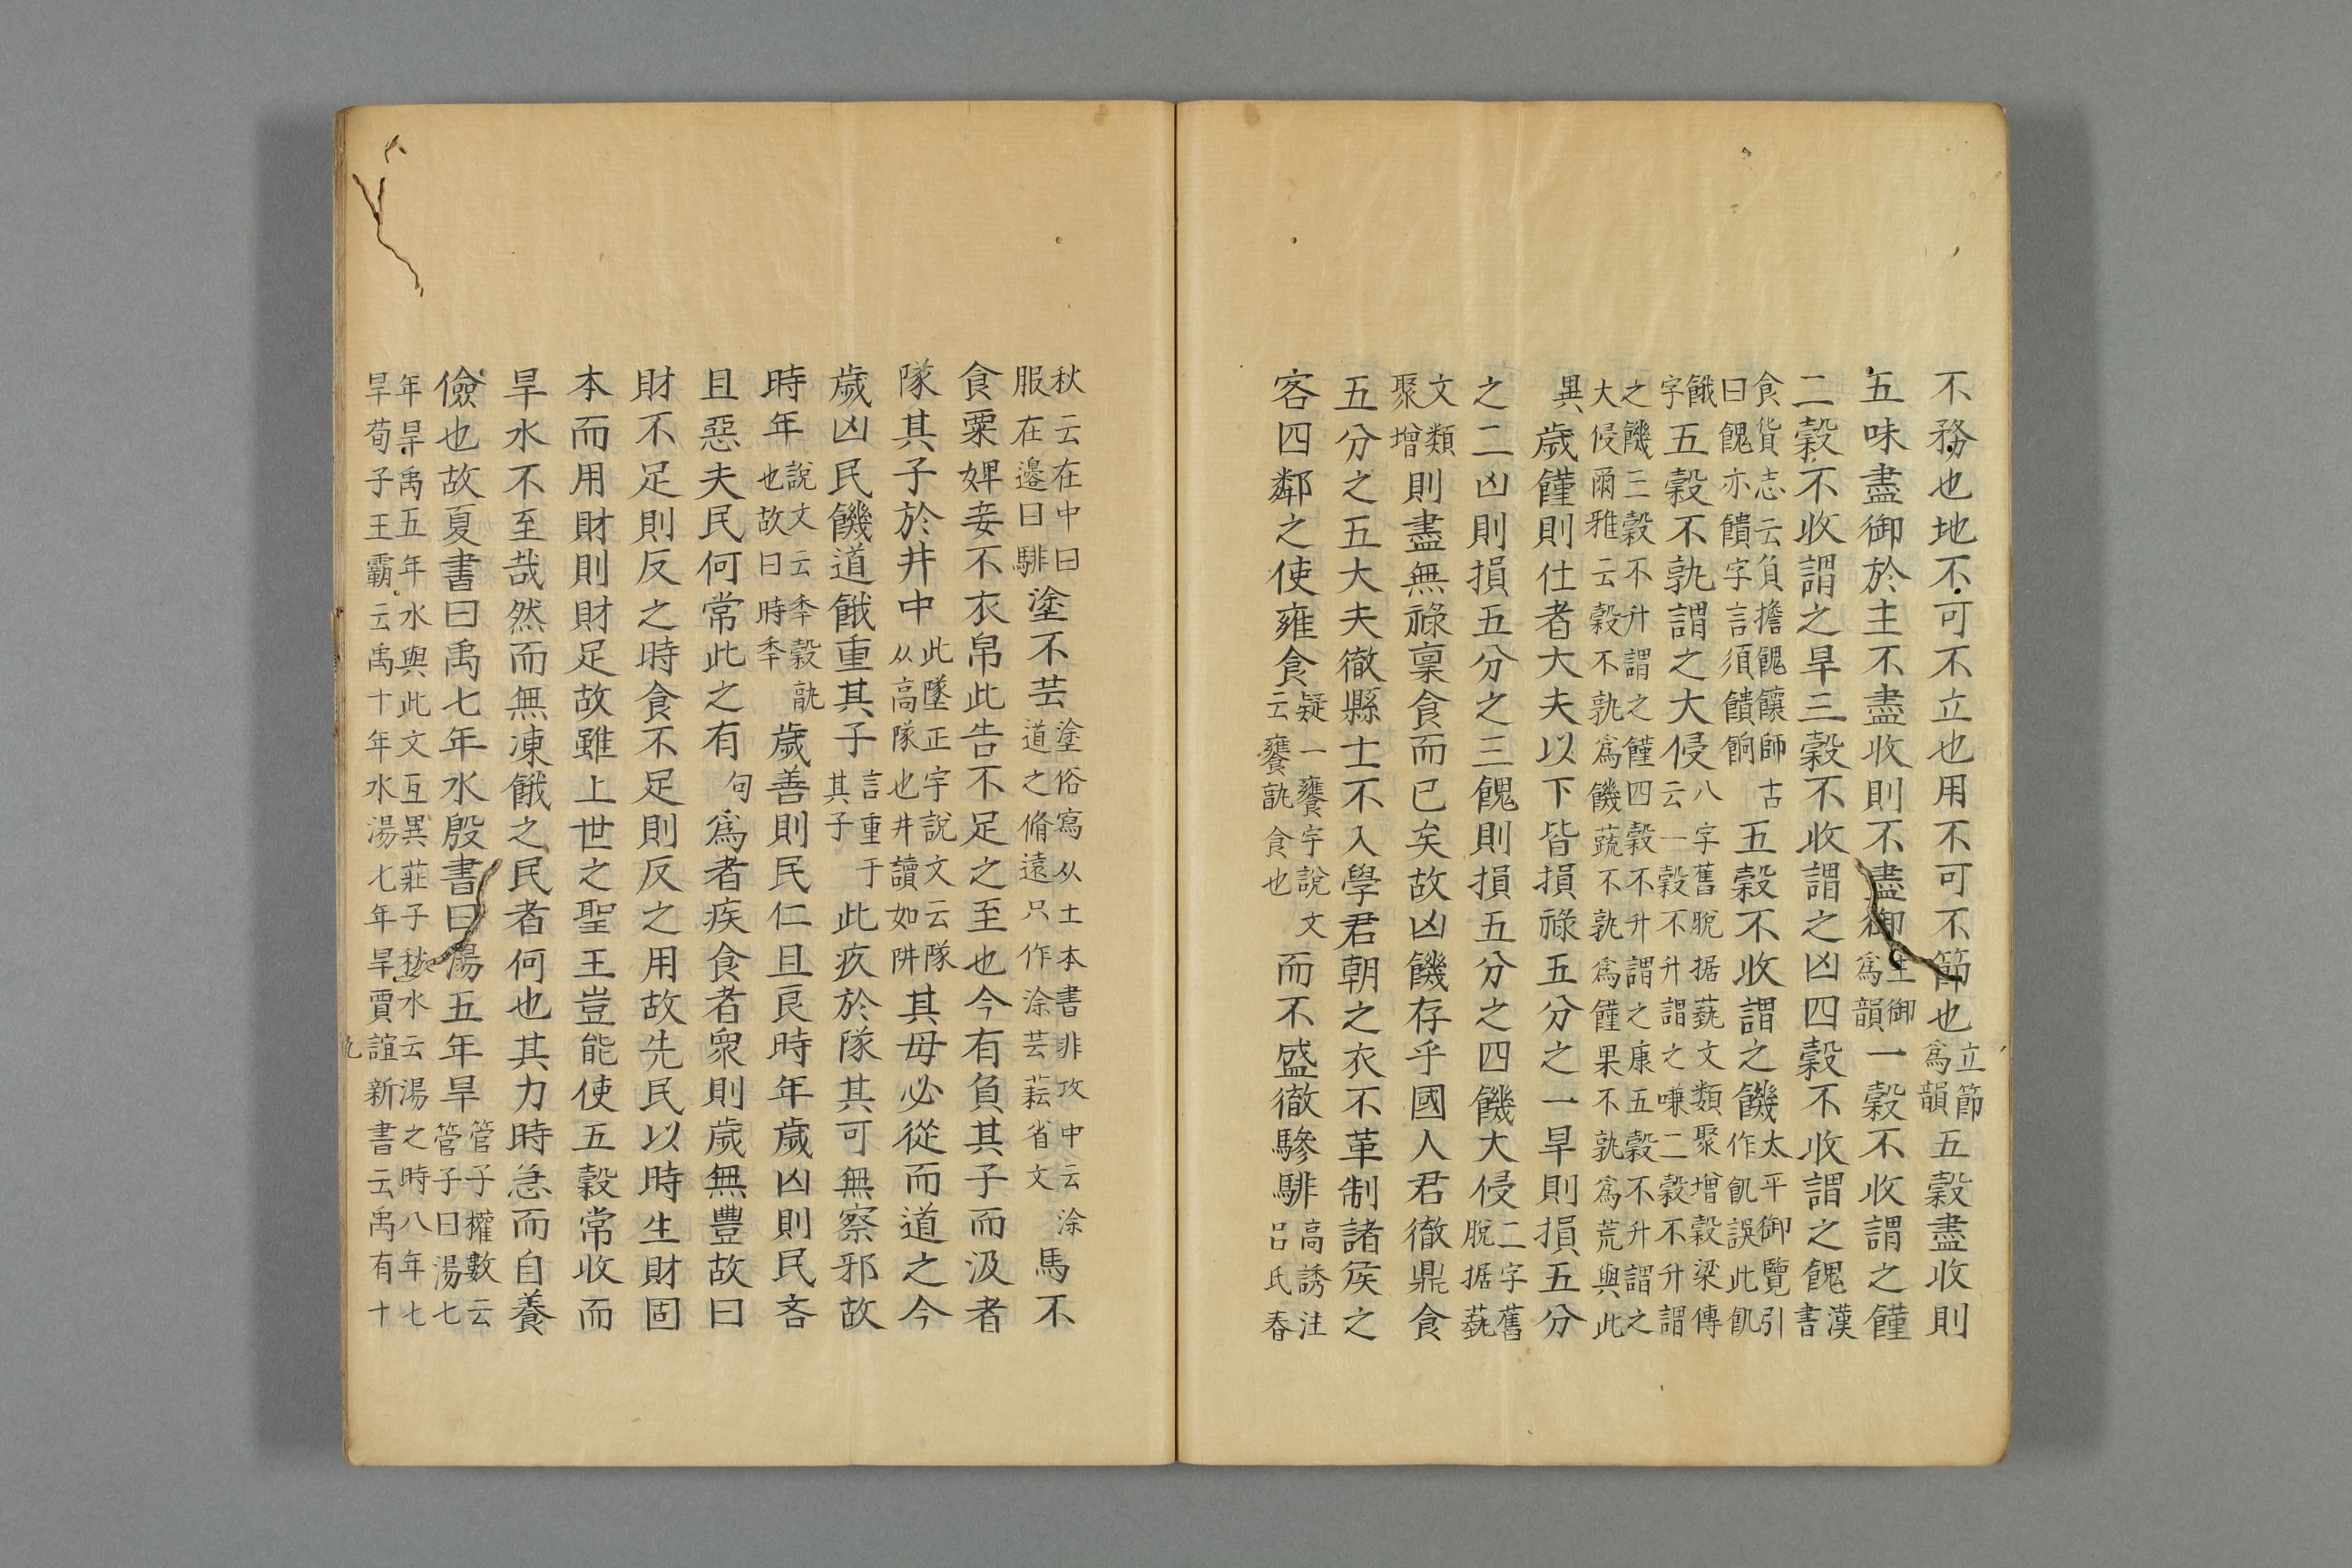 不務也地不可不立也用不可不節也立節爲韻五穀盡收則
五味盡御於主不盡收則不盡御主御爲韻一穀不收謂之饉
二穀不收謂之旱三穀不收謂之凶四穀不收謂之餽漢書
食貨志云負擔餽饟師古曰餽亦饋字言須饋餉五穀不收謂之饑太平御覽引作飢誤此飢
餓字五穀不孰謂之大侵八字舊脫据蓺文類聚增穀梁傳云一穀不升謂之嗛二穀不升謂
之饑三穀不升謂之饉四穀不升謂之康五穀不升謂之大侵爾雅云穀不孰爲饑蔬不孰爲饉果不孰爲荒與此
異歲饉則仕者大夫以下皆損祿五分之一旱則損五分
之二凶則損五分之三餽則損五分之四饑大侵二字舊脫据蓺
文類聚增則盡無祿稟食而已矣故凶饑存乎國人君徹鼎食
五分之五大夫徹縣士不入學君朝之衣不革制諸矦之
客四鄰之使雍食疑一饔字說文云饔孰食也而不盛徹驂騑高誘注呂氏春
秋云在中曰服在邊曰騑塗不芸塗俗寫从土本書非攻中云涂道之脩遠只作涂芸䕌省文馬不
食粟婢妾不衣帛此告不足之至也今有負其子而汲者
隊其子於井中此墜正字說文云隊从高隊也井讀如阱其母必從而道之今
歲凶民饑道餓重其子言重于其子此疚於隊其可無察邪故
時年說文云秊穀孰也故曰時秊歲善則民仁且良時年歲凶則民吝
且惡夫民何常此之有句爲者疾食者衆則歲無豐故曰
財不足則反之時食不足則反之用故先民以時生財固
本而用財則財足故雖上世之聖王豈能使五穀常收而
旱水不至哉然而無凍餓之民者何也其力時急而自養
儉也故夏書曰禹七年水殷書曰湯五年旱管子權數云管子曰湯七
年旱禹五年水與此文互異莊子秋水云湯之時八年七旱荀子王霸云禹十年水湯七年旱賈誼新書云禹有十